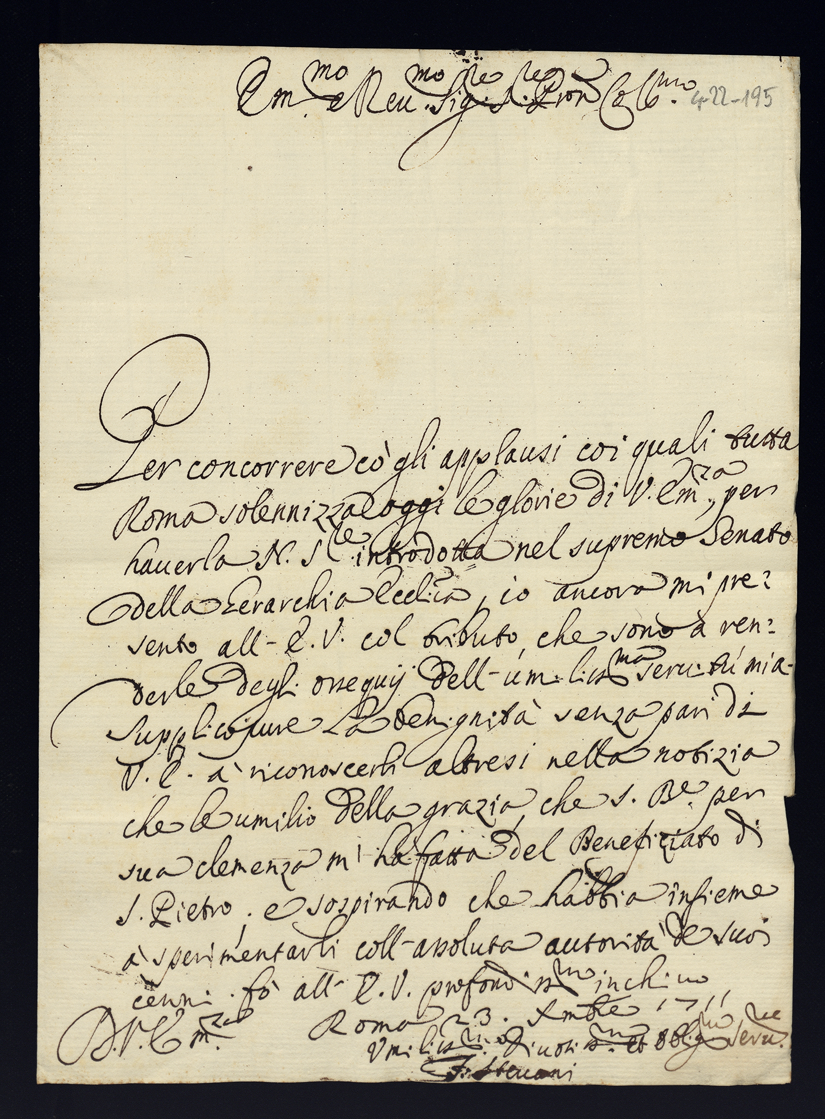 Em.mo e Reu.mo Sig.re S.re Pron Col.mo 4-22-195
Per concorrere cò gli applausi coi quali tutta
Roma solennizza oggi le glorie di V. Em.za, per
hauerla N. S.re introdotta nel supremo Senato
della Gerarchia Eccl.ca, io ancora mi pre=
sento all' E. V. col tributo che sono à ren=
derle degli ossequij dell' umiliss.ma seruitù mia.
Supplico pure la benignità senza pari di
V. E. à riconoscerli altresi nella notizia
che le umilio della grazia, che S. B.e per
sua clemenza m' hà fatta del Benefiziato di
S. Pietro, e sospirando che habbia insieme
à sperimentarli coll' assoluta autorità de suoi
cenni. fò all' E. V. profondiss.mo inchino
Roma 23. Xmbre 1711
D. V. Em.za
Vmiliss.mo Diuotiss.mo et Oblig.mo Seru.re
F. Steuani